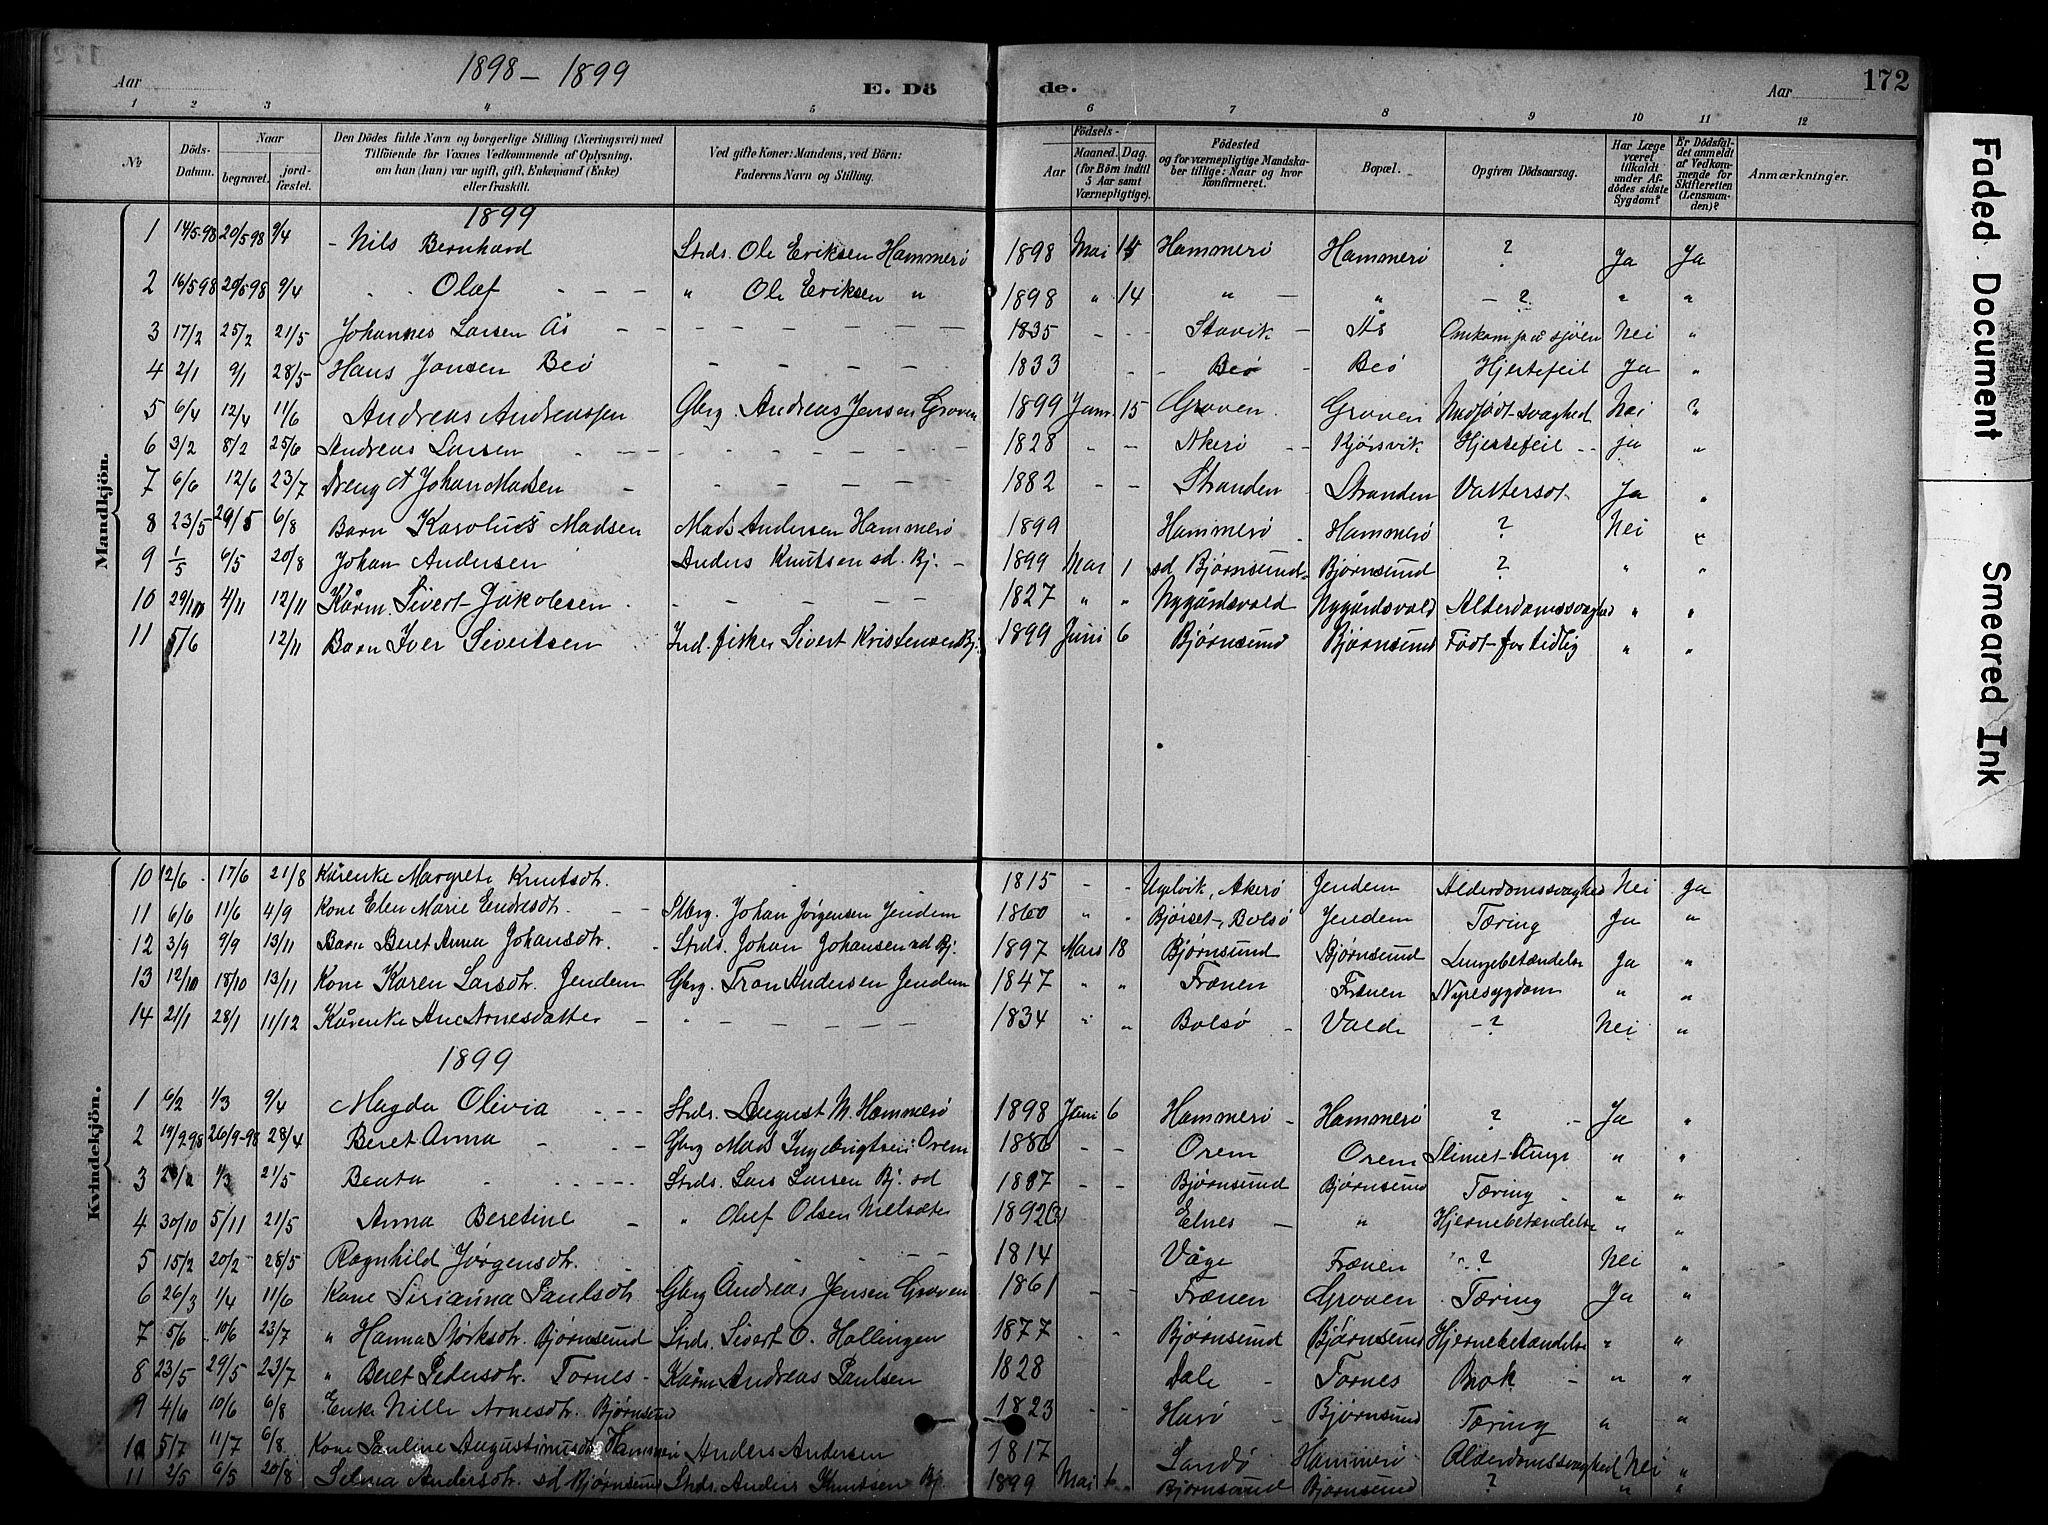 Aar 1898 – 1899 E. Dö de. Aar 172
1 2 3 4 5 6 7 8 9 10 11 12
No Döds-Datum. Naar begravet. jord-fæstet. Den Dödes fulde Navn og borgerlige Stilling (Næringsvei) med Tilföiende for Voxnes Vedkommende af Oplysning, om han (hun) var ugift, gift, Enkemand (Enke) eller fraskilt. Ved gifte Koner: Mandens, ved Börn: Faderens Navn og Stilling. Aar Födsels- Maaned. Dag. (for Börn indtil 5 Aar samt Værnepligtige). Födested og for værnepligtige Mandskaber tillige: Naar og hvor konfirmeret. Bopæl. Opgiven Dödsaarsag. Har Læge været tilkaldt under Afdödes sidste Sygdom? Er Dödsfaldet anmeldt af Vedkommende for Skifteretten (Lensmanden)? Anmærkninger.
Mandkjön.
1899
1 14/5-98 20/5 98 9/4 – Nils Bernhard Strds. Ole Eriksen Hammerö 1898 Mai 14 Hammerö Hammerö ? Ja Ja
2 16/5 98 20/5 98 9/4 Olaf – – – " Ole Eriksen " 1898 " 14 " – " – ? " "
3 17/2 25/2 21/5 Johannes Larsen Ås – – – 1835 – – Stavik – Ås Omkom på sjöen Nei "
4 2/1 9/1 28/5 Hans Jonsen Beö – – – 1833 – Beö – Beö Hjertefeil Ja "
5 6/4 12/4 11/6 Andreas Andreassen Gbrg. Andreas Jensen Groven 1899 Jan 15 Groven Groven Medfödt svaghed Nei "
6 3/2 8/2 25/6 Andreas Larsen – – – 1828 – – Akerö – Kjörsvik Hjertefeil – ja "
7 6/6 12/6 23/7 Dreng A Johan Madsen – 1882 – – Stranden Stranden Vattersot Ja "
8 23/5 29/5 6/8 Barn Karolius Madsen Mads Andersen Hammerö 1899 Hammerö Hammerö ? Nei "
9 1/5 6/5 20/8 Johan Andersen Anders Knutsen sd. Bj. – 1899 Mai 1 sd Björnsund Björnsund ? " "
10 29/10 4/11 12/11 Kårm. Sivert Jakobsen – – – 1827 " " Nygårdsvald Nygårdsvald Alderdomssvaghed " "
11 5/6 12/11 Barn Iver Sivertsen Ind. fisker Sivert Kristensen Bj. 1899 Juni 6 Björnsund Björnsund Födt for tidlig " "
Kvindekjön.
10 12/6 17/6 21/8 Kårenke Margrete Knutsdtr. 1815 – – Ugelvik, Akerö Jendem Alderdomssvaghed Nei Ja
11 6/6 11/6 4/9 Kone Elen Marie Endresdtr. – – Johan Jörgensen Jendem 1860 " " Björset, Bolsö Jendem Tæring Ja "
12 3/9 9/9 13/11 Barn Beret Anna Johansdtr. Strds. Johan Johansen sd Bj. 1897 Mars 18 Björnsund Björnsund Lungebetændelse Ja "
13 12/10 18/10 13/11 Kone Karen Larsdtr. Jendem Gbrg. Tron Andersen Jendem 1847 " " Frænen Frænen Nyresygdom " "
14 21/1 28/1 11/12 Kårenke Ane Arnesdatter – " – – – 1834 " " Bolsö – Valde – ? Nei "
1899
1 6/2 1/3 9/4 Magda Olivia – – – Strds. August M. Hammerö 1898 Juni 6 Hammerö – Hammerö ? – Ja "
2 19/9 98 26/9-98 28/4 Beret Anna – – Gbrg Mads Ingebrigtsen Orem 1886 – – Orem Orem " "
3 1/3 21/5 Beata – – – Strds. Lars Larsen Bj. sd – – Björnsund Björnsund Tæring – " "
4 30/10 5/11 21/5 Anna Beretine – " Oluf Olsen 1892 Elnes – " Hjernebetændelse " "
5 15/2 20/2 28/5 Ragnhild Jörgensdtr. 1814 Våge Frænen ? Nei "
6 26/3 1/4 11/6 Kone Sirianna Paulsdtr Gbrg Andreas Jensen Groven 1861 – – Frænen Groven Tæring Ja "
7 5/6 10/6 23/7 " Hanna Björnsund Strds. Sivert O. Hollingen 1877 " " Björnsund Björnsund Hjernebetændelse " "
8 23/5 29/5 23/7 " Beret Pedersdtr. Tornes Kårm Andreas Paulsen 1828 Dale – Tornes Brok – " "
9 4/6 10/6 6/8 Enke Nille Arnesdtr. Björnsund 1823 – – Harö – Björnsund Tæring " "
10 5/7 11/7 6/8 Kone Pauline Augustinusdtr Hammerö Anders Andersen 1817 Sandö Hammerö Alderdomssvaghed Nei "
11 2/5 6/5 20/8 Selma Andersdtr. sd Björnsund Strds. Anders Knutsen Bj. 1899 Mai Björnsund Björnsund ? " "
Faded Document
Smeared Ink